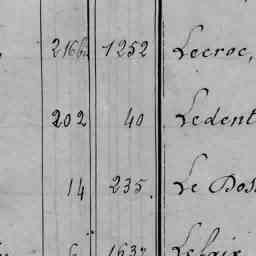 216bis 1252 Lecroc,
202 40 Ledent
14 235. Le Dos
6 1637 Lefair